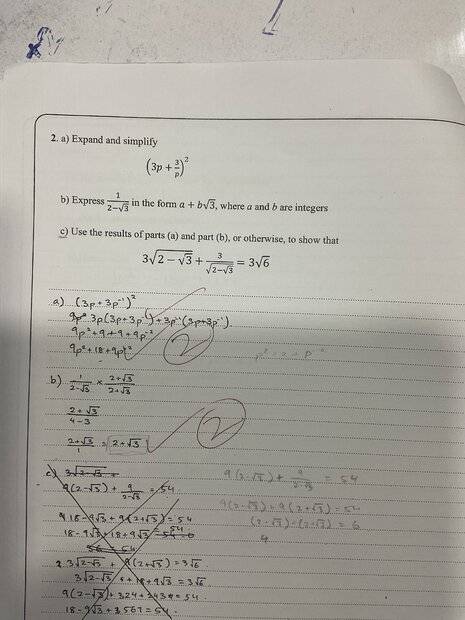 2. a) Expand and simplify
(3p + 3/p)²
b) Express 1/(2−√3) in the form a + b√3, where a and b are integers
c) Use the results of parts (a) and part (b), or otherwise, to show that
3√(2 − √3) + 3/√(2−√3) = 3√6
a) (3p + 3p⁻¹)²
3p(3p+3p⁻¹)+3p⁻¹(3p+3p⁻¹)
9p²+9+9+9p⁻²
9p²+18+9p⁻²
2
b) 1/(2-√3) × (2+√3)/(2+√3)
(2+√3)/(4-3)
(2+√3)/1 = 2+√3
2
c) 3√(2-√3) +
9(2-√3) + 9/(2-√3) = 54
9(2-√3) + 9/(2-√3) = 54
18-9√3 + 9(2+√3) = 54
9(2-√3)+9(2+√3) = 54
18-9√3+18+9√3 = 54
(2-√3)+(2+√3) = 6
4
3√(2-√3) + 9(2+√3) = 3√6
18-9√3+3567 = 54